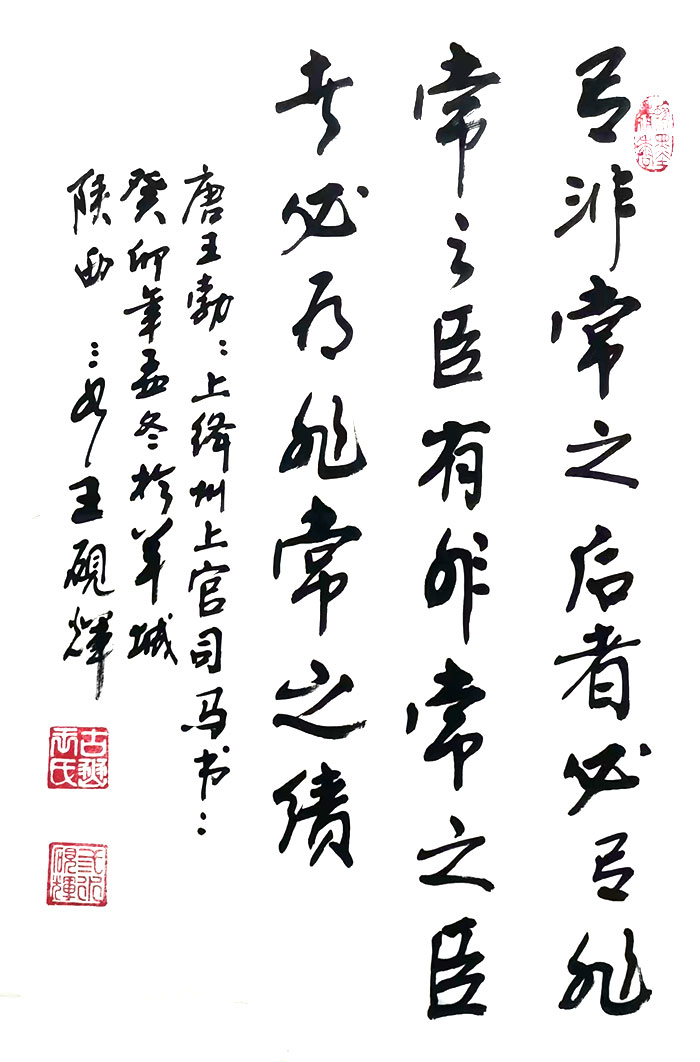 有非常之后者必有非
常之臣有非常之臣
者必有非常之绩
唐王勃：上绛州上官司马书：
癸卯年孟冬於羊城
陕西 王砚輝